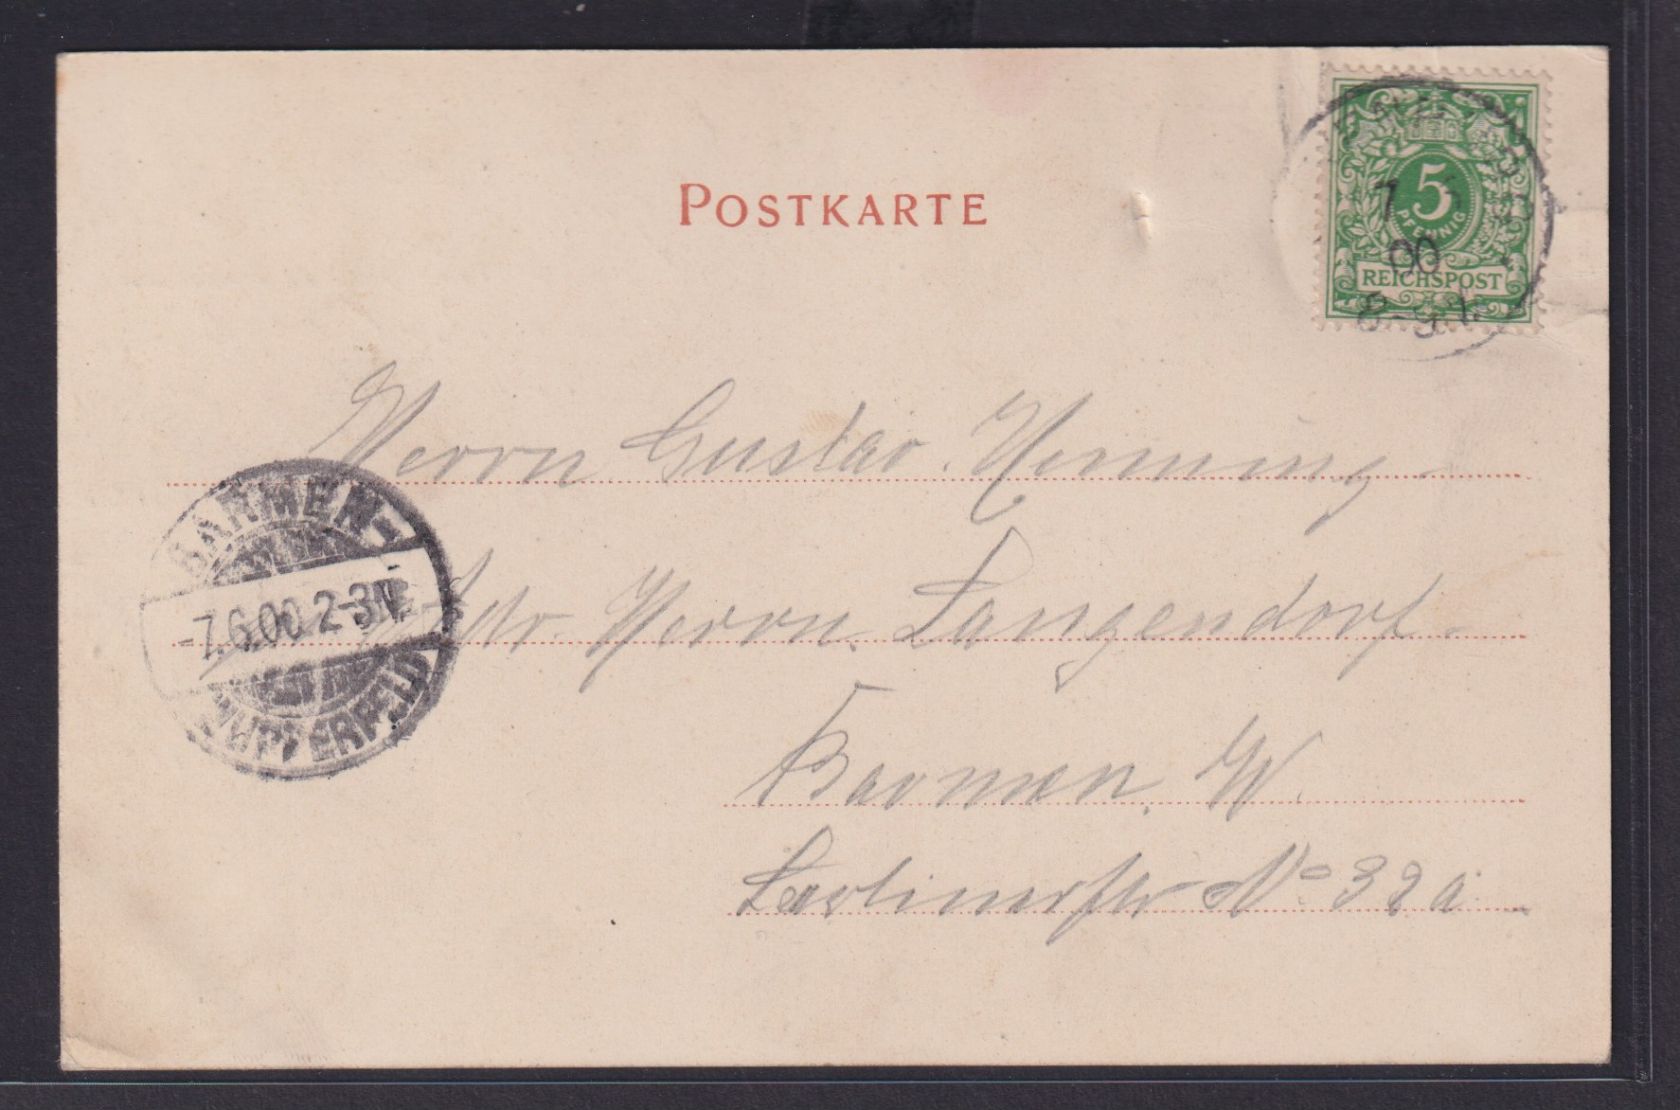 POSTKARTE
5
PFENNIG
REICHSPOST
7
00
8-9V.
Herrn Gustav Henning
Adr. Herrn Langendorf.
Barmen. W.
Berlinerstr No 32a
BARMEN-
-7.6.00.2-3N.
WUPPERFELD